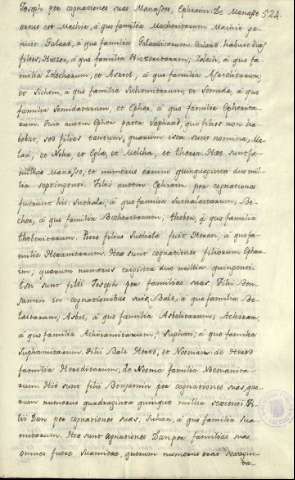 Joseph per cognationes suas Manasses, Ephraim. De Manasse 524.
ortus est Machir, a quo familia Machiritarum Machir ge-
nuit Galaad, a quo familia Galaaditarum. Galaad habuit
filios, Hiezer, a quo familia Hiezeritarum, Helech, a quo fa-
milia Helecitarum, et Asriel, a quo familia Asrielitarum,
et Sichem, a quo familia Sichimitarum, et Semida, a quo
familia Semidatarum, et Epher, a quo familia Epherita-
rum. Fuit autem Epher pater Saphaad, qui filios non ha-
bebat, sed filias tantum, quarum ista sunt nomina, Ma-
la, et Noha, et Egla, et Melcha, et Thersa. Hae sunt fa-
miliae Manasse, et numerus earum quinquaginta duo mi-
llia septingenti. Filii autem Ephraim per cognationes
fuerunt hi: Suthala, a quo familia Suthalaitarum, Be-
cher, a quo familia Becheritarum, Thehen, a quo familia
thehenitarum. Porro filius Suthala fuit Heran, a quo fa-
milia Heranitarum. Hae sunt cognationes filiorum Ephra-
im, quorum numerus triginta duo millia quingenti.
Isti sunt filii Joseph per familias suas. Filii Ben-
jamin in cognationibus suis, Bela, a quo familia Be-
laitarum, Asbel, a quo familia Asbelitarum, Achiram,
a quo familia Achiramitarum, Supham, a quo familia
Suphamitarum. Filii Bela Hered, et Noeman de Hered
familia Hereditarum, de Noema familia Noemanita-
rum Hi sunt filii Benjamin per cognationes suas, quo-
rum numerus quadraginta quinque millia sexcenti Fi-
lii Dan per cognationes suas, Suham, a quo familia Suha-
mitarum. Hae sunt cognationes Dan per familias suas
omnes fuere Suamitae, quorum numerus erat sexagin-
ta